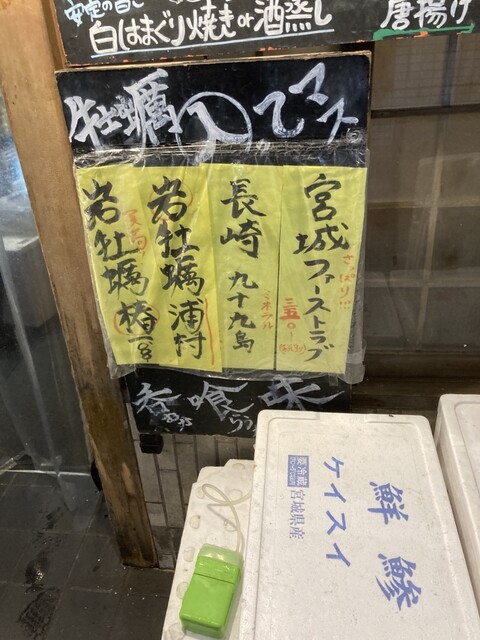 安定の旨し
白はまぐり焼きor酒蒸し
唐揚げ
牡蠣入ってマス
宮城ファーストラブ
さっぱり
三五〇
長崎 九十九島
ミネラル
岩牡蠣 浦村
岩牡蠣 椿
呑 喰 味
鮮 鯵
ケイスイ
要冷蔵
宮城県産